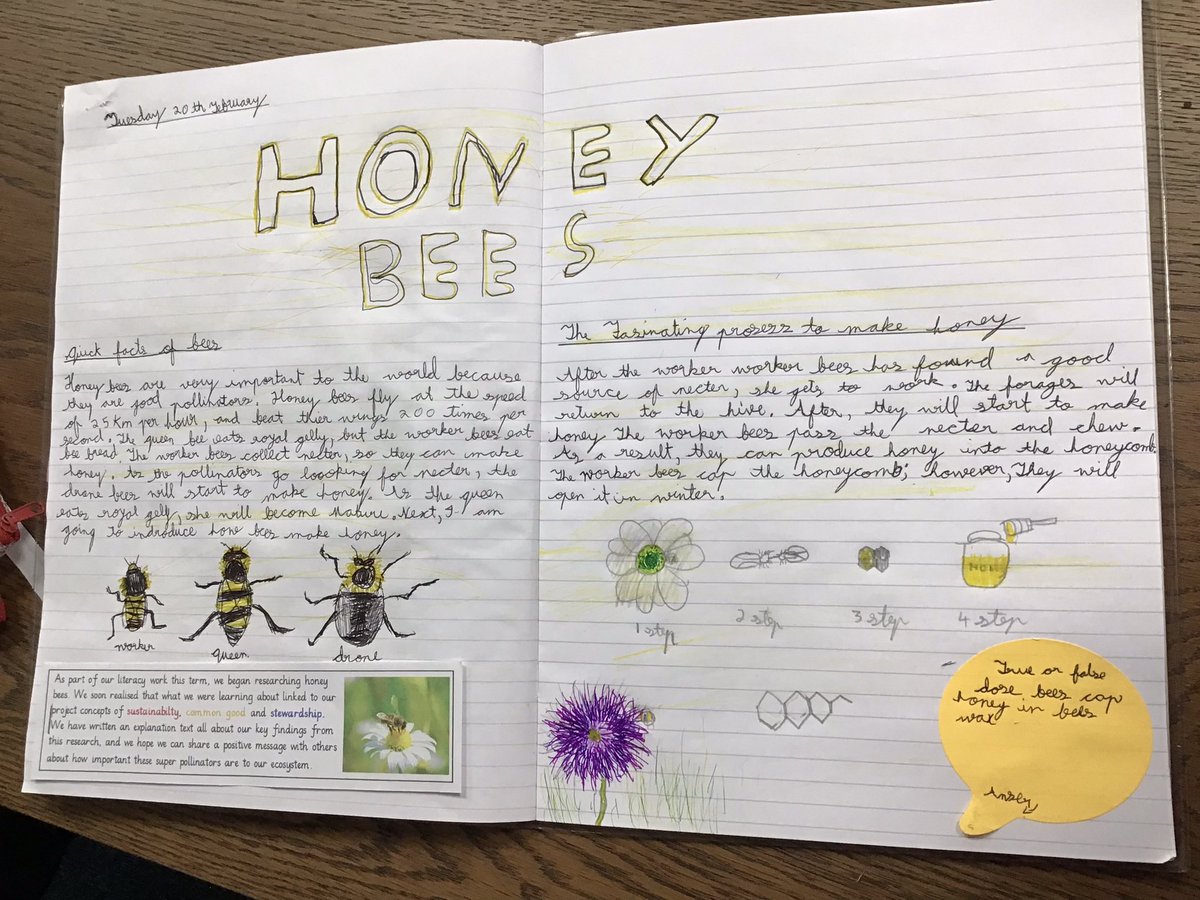 Tuesday 20th February
HONEY
BEES
Quick facts of bees
Honey bees are very important to the world because
they are good pollinators. Honey bees fly at the speed
of 25 km per hour, and beat thier wings 200 times per
second. The queen bee eats royal gelly, but the worker bees eat
bee bread. The worker bees collect necter, so they can make
honey. As the pollinators go loocking for necter, the
drone bees will start to make honey. As the queen
eats royal gelly, she will become Mature. Next, I am
going to indroduce how bees make honey.
worker
queen
drone
As part of our literacy work this term, we began researching honey
bees. We soon realised that what we were learning about linked to our
project concepts of sustainabilty, common good and stewardship.
We have written an explanation text all about our key findings from
this research, and we hope we can share a positive message with others
about how important these super pollinators are to our ecosystem.
The Fasinating prosess to make honey
After the worker worker bees has found a good
source of necter, she gets to work. The forages will
return to the hive. After, they will start to make
honey The worker bees pass the necter and chew.
As a result, they can produce honey into the honeycomb.
The worker bees cap the honeycomb; however, They will
open it in winter.
1 step
2 step
3 step
4 step
True or false
dose bees cap
honey in bees
wax